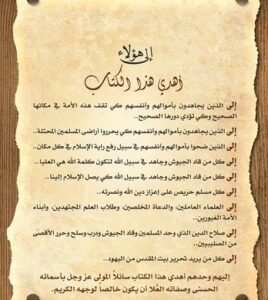 إلى هؤلاء
أهدي هذا الكتاب
إلى الذين يجاهدون بأموالهم وأنفسهم كي تقف هذه الأمة في مكانها
الصحيح وكي تؤدي دورها الصحيح..
إلى الذين يجاهدون بأموالهم وأنفسهم كي يحرروا أراضى المسلمين المحتلة..
إلى الذين ضحوا بأموالهم وأنفسهم في سبيل رفع راية الإسلام في كل مكان..
إلى كل من قاد الجيوش وجاهد في سبيل الله لتكون كلمة الله هي العليا..
إلى كل من قاد الجيوش وجاهد في سبيل الله كي يصل الإسلام إلينا..
إلى كل مسلم حريص على إعزاز دين الله ونصرته..
إلى العلماء العاملين، والدعاة المخلصين، وطلاب العلم المجتهدين، وأبناء
الأمة الغيورين..
إلى صلاح الدين الذي وحد المسلمين وقاد الجيوش ودرب وسلح وحرر الأقصى
من الصليبيين..
إلى كل من يريد تحرير بيت المقدس من اليهود..
إليهم وحدهم أهدي هذا الكتاب سائلاً المولى عز وجل بأسمائه
الحسنى وصفاته العُلا أن يكون خالصاً لوجهه الكريم.